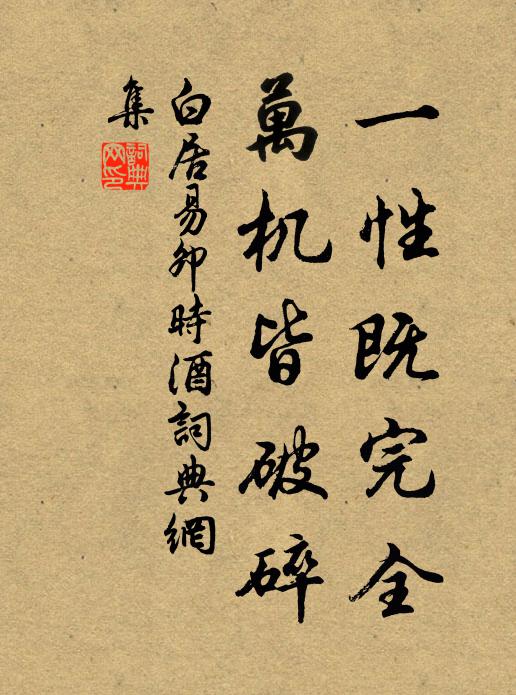 一性既完全
萬机皆破碎
白居易卯時酒詞典網
集
詞典
网印